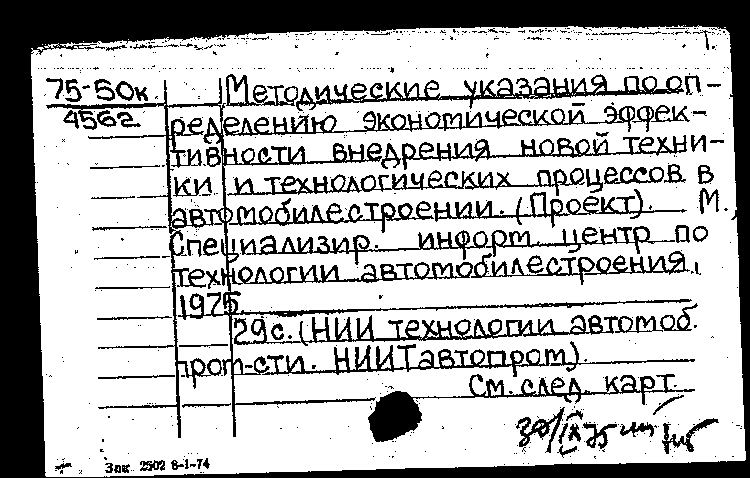 1.
75-50к Методические указания по оп-
4562 ределению экономической эффек-
тивности внедрения новой техни-
ки и технологических процессов в
автомобилестроении. (Проект). М.,
Специализир. информ. центр по
технологии автомобилестроения,
1975.
29с. (НИИ технологии автомоб.
пром-сти. НИИТавтопром).
См. след. карт.
Зак. 2502 8-1-74